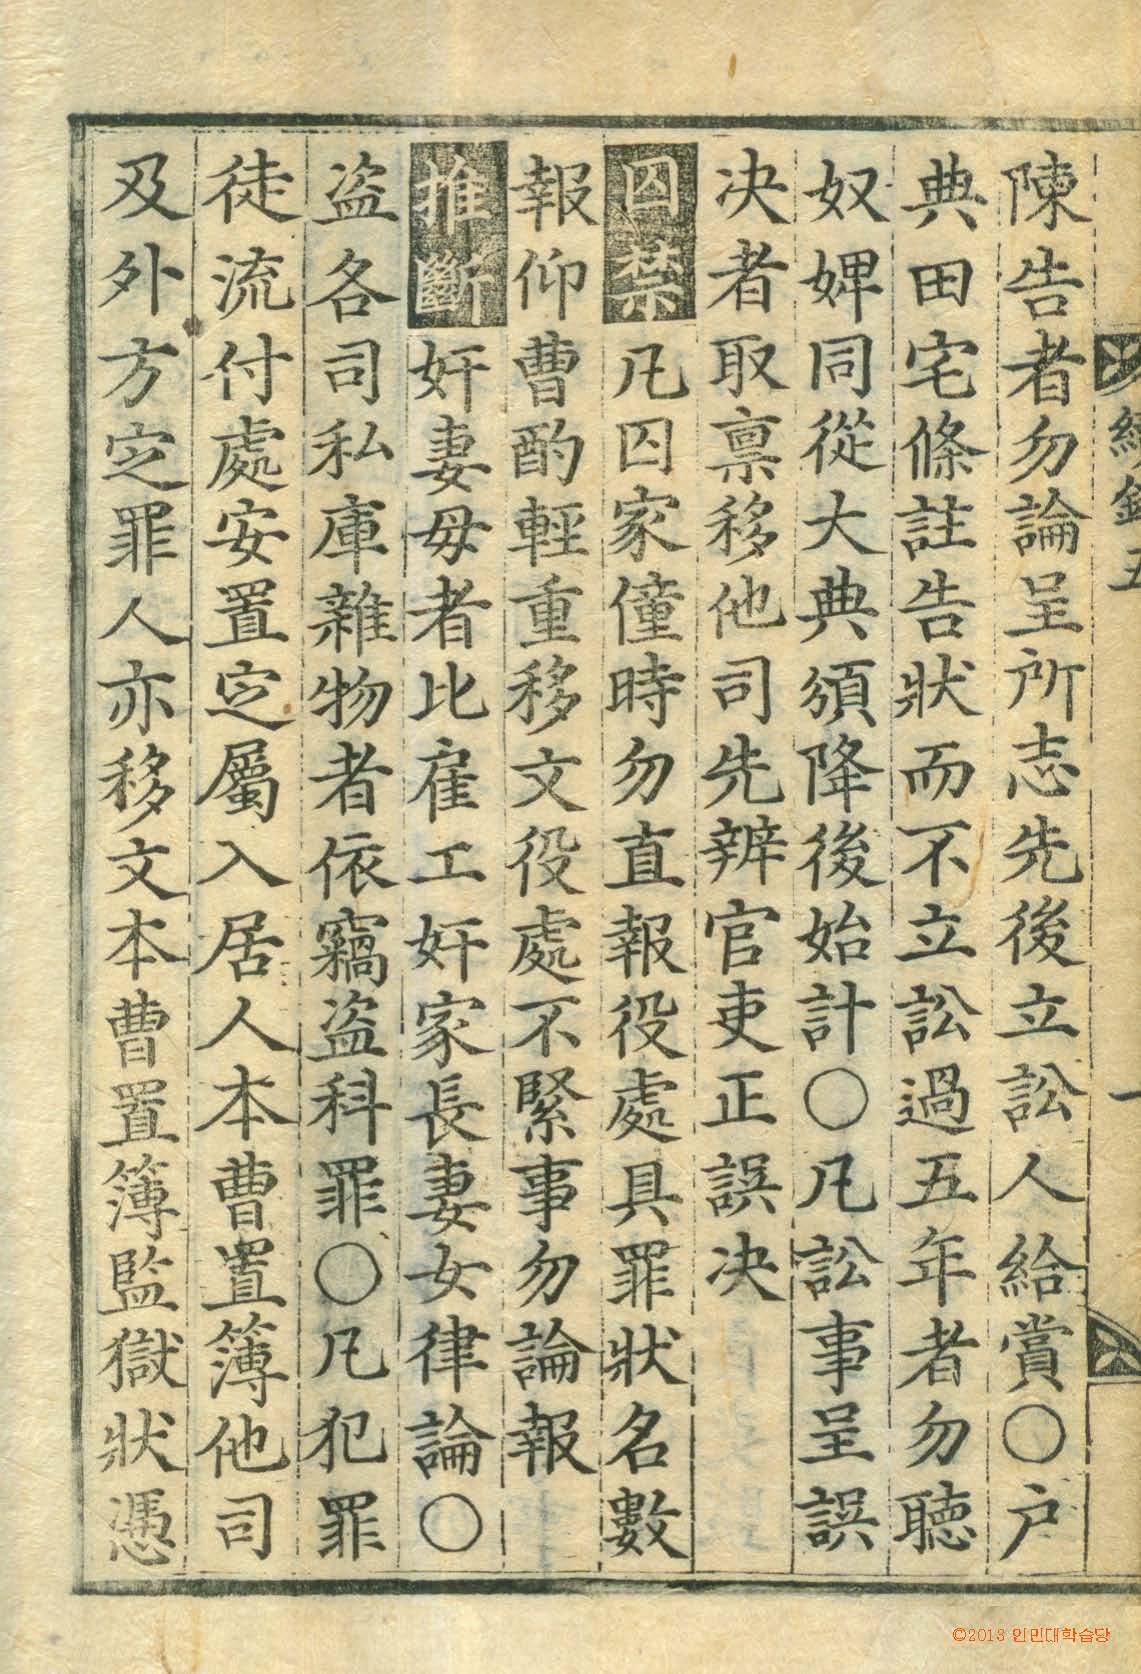 陳告者勿論呈所志先後立訟人給賞〇户
典田宅條註告狀而不立訟過五年者勿聽
奴婢同從大典頒降後始計〇凡訟事呈誤
决者取禀移他司先辨官吏正誤决
囚禁凡囚家僮時勿直報役處具罪狀名數
報仰曹酌輕重移文役處不緊事勿論報
推斷奸妻母者比雇工奸家長妻女律論〇
盗各司私庫雜物者依竊盗科罪〇凡犯罪
徒流付處安置定屬入居人本曹置簿他司
及外方定罪人亦移文本曹置簿監獄狀憑
©2013 인민대학습당